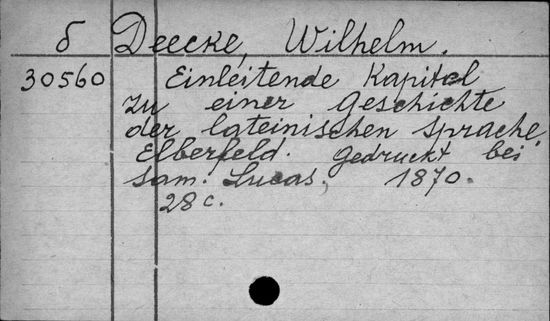 б Deecke, Wilhelm.
30560 Einleitende Kapitel
zu einer Geschichte
der lateinischen Sprache.
Elberfeld. Gedruckt bei
Sam. Lucas, 1870.
28 c.